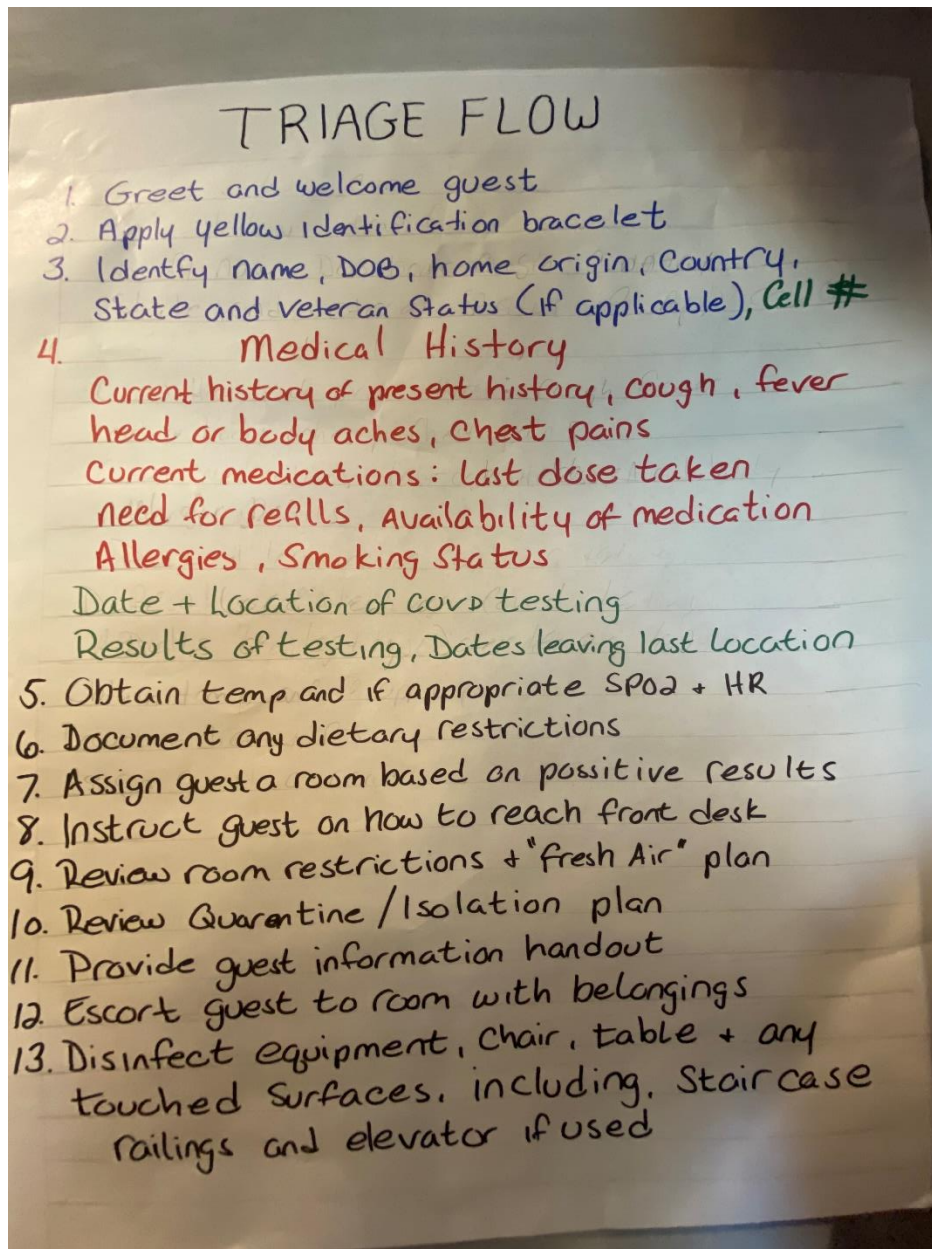 TRIAGE FLOW
1. Greet and welcome guest
2. Apply yellow identification bracelet
3. Identfy name, DOB, home origin, Country,
State and veteran Status (if applicable), Cell #
4. Medical History
Current history of present history, cough, fever
head or body aches, chest pains
Current medications: last dose taken
need for refills, Availability of medication
Allergies, Smoking Status
Date + Location of COVD testing
Results of testing, Dates leaving last location
5. Obtain temp and if appropriate SPO2 + HR
6. Document any dietary restrictions
7. Assign guest a room based on possitive results
8. Instruct guest on how to reach front desk
9. Review room restrictions + "fresh Air" plan
10. Review Quarentine / Isolation plan
11. Provide guest information handout
12. Escort guest to room with belongings
13. Disinfect equipment, Chair, table + any
touched surfaces, including, Stair case
railings and elevator if used